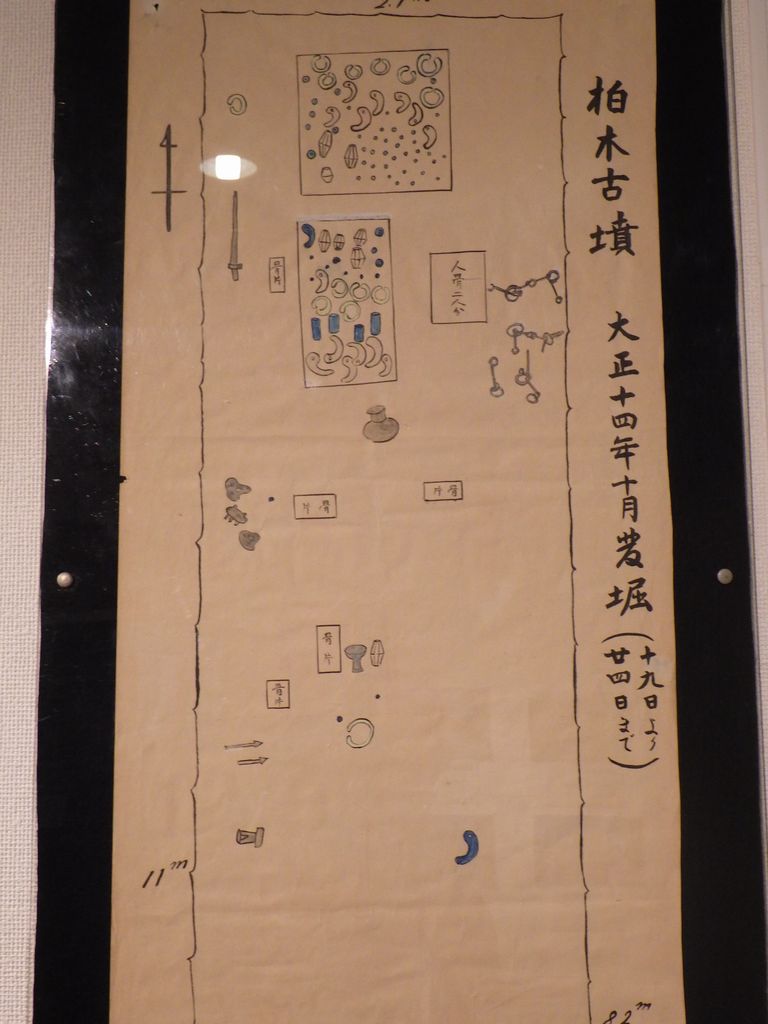 柏木古墳 大正十四年十月発堀
(十九日より
廿四日まで)
人骨二人分
骨片
骨片
骨片
骨片
骨片
11m
82m